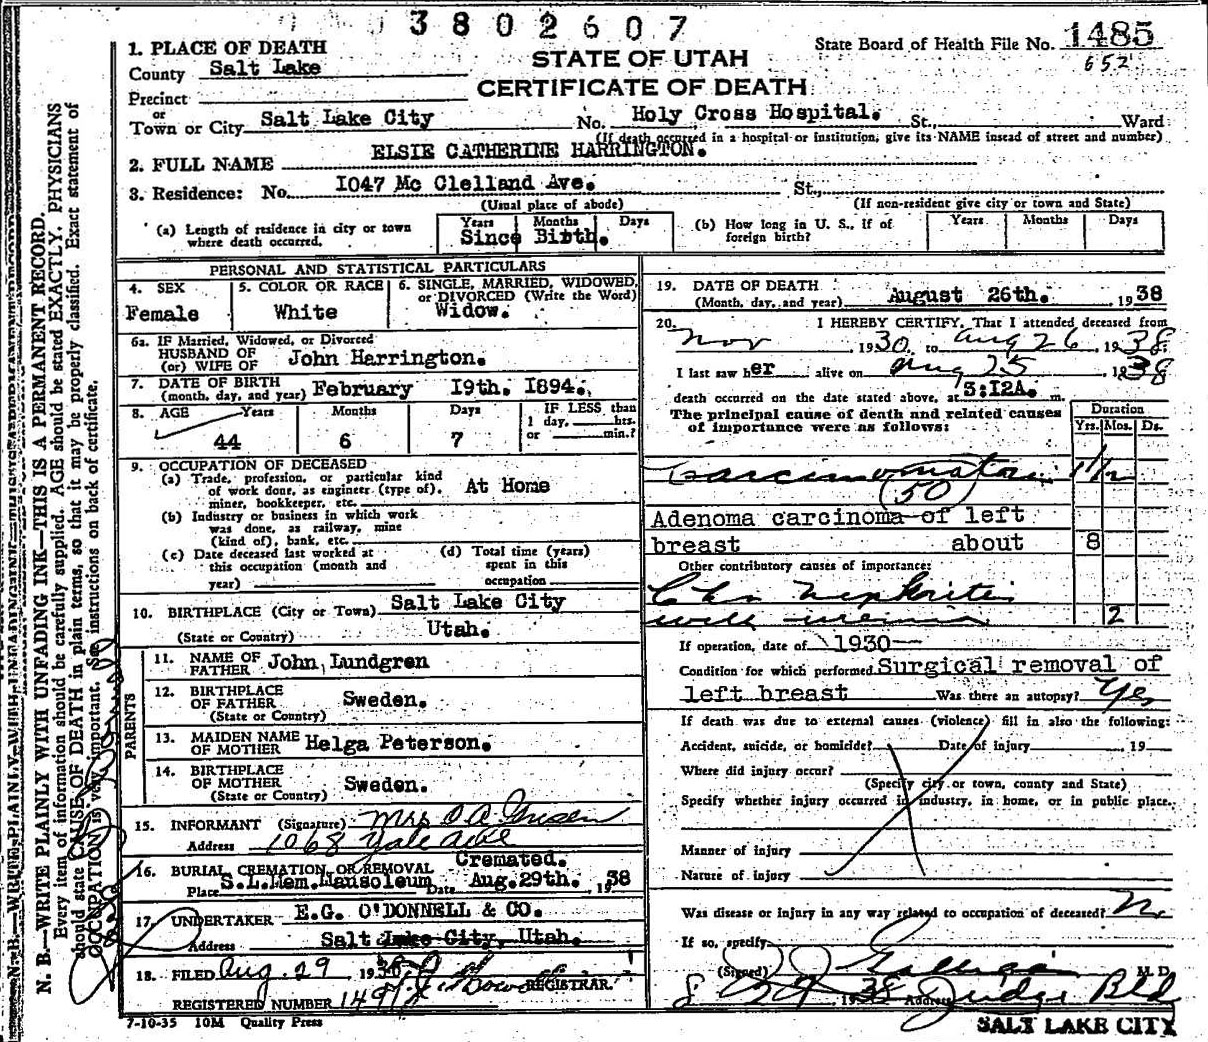 3802607
STATE OF UTAH
CERTIFICATE OF DEATH
State Board of Health File No. 1485
652
1. PLACE OF DEATH
County Salt Lake
Precinct
or
Town or City Salt Lake City No. Holy Cross Hospital. St., Ward
(If death occurred in a hospital or institution, give its NAME insead of street and number)
2. FULL NAME ELSIE CATHERINE HARRINGTON.
3. Residence: No. 1047 Mc Clelland Ave. St.,
(Usual place of abode) (If non-resident give city or town and State)
(a) Length of residence in city or town where death occurred. Years Months Days
Since Birth.
(b) How long in U. S., if of foreign birth? Years Months Days
PERSONAL AND STATISTICAL PARTICULARS
4. SEX Female
5. COLOR OR RACE White
6. SINGLE, MARRIED, WIDOWED, or DIVORCED (Write the Word) Widow.
6a. IF Married, Widowed, or Divorced
HUSBAND OF
(or) WIFE OF John Harrington.
7. DATE OF BIRTH
(month, day, and year) February 19th. 1894.
8. AGE Years Months Days IF LESS than
1 day, hrs.
or min.?
44 6 7
9. OCCUPATION OF DECEASED
(a) Trade, profession, or particular kind
of work done, as engineer (type of),
miner, bookkeeper, etc. At Home
(b) Industry or business in which work
was done, as railway, mine
(kind of), bank, etc.
(c) Date deceased last worked at
this occupation (month and
year)
(d) Total time (years)
spent in this
occupation
10. BIRTHPLACE (City or Town) Salt Lake City
(State or Country) Utah.
PARENTS
11. NAME OF
FATHER John Lundgren
12. BIRTHPLACE
OF FATHER Sweden.
(State or Country)
13. MAIDEN NAME
OF MOTHER Helga Peterson.
14. BIRTHPLACE
OF MOTHER Sweden.
(State or Country)
15. INFORMANT (Signature) Mrs O A
Address 1068 Yale Ave
16. BURIAL, CREMATION, OR REMOVAL Cremated.
Place S.L.Mem.Mausoleum Date Aug.29th. 1938
17. UNDERTAKER E.G. O'DONNELL & CO.
Address Salt Lake City, Utah.
18. FILED Aug. 29 193
REGISTRAR.
REGISTERED NUMBER
7-10-35 10M Quality Press
19. DATE OF DEATH
(Month, day, and year) August 26th. , 1938
20. I HEREBY CERTIFY, That I attended deceased from
Nov , 1930, to Aug 26 , 1938
I last saw her alive on Aug 25 1938
death occurred on the date stated above, at 3:12A. m.
The principal cause of death and related causes
of importance were as follows:
Duration
Yrs. Mos. Ds.
Carcinomatosis 1 1/2
(50)
Adenoma carcinoma of left
breast about 8
Other contributory causes of importance:
Chr Nephritis
with uremia 2
If operation, date of 1930
Condition for which performed Surgical removal of
left breast Was there an autopsy? Yes
If death was due to external causes (violence) fill in also the following:
Accident, suicide, or homicide? Date of injury , 19
Where did injury occur?
(Specify city or town, county and State)
Specify whether injury occurred in industry, in home, or in public place.
Manner of injury
Nature of injury
Was disease or injury in any way related to occupation of deceased? No
If so, specify
(Signed) M. D.
8 29 1938 Address Judge Bld
SALT LAKE CITY
N. B.—WRITE PLAINLY WITH UNFADING INK—THIS IS A PERMANENT RECORD.
Every item of information should be carefully supplied. AGE should be stated EXACTLY. PHYSICIANS
should state CAUSE OF DEATH in plain terms, so that it may be properly classified. Exact statement of
OCCUPATION is very important. See instructions on back of certificate.